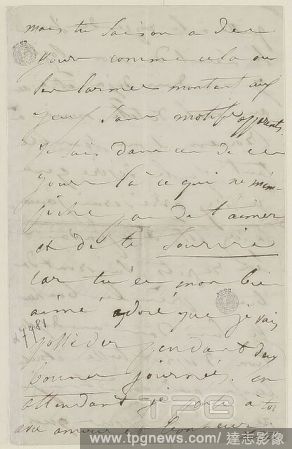 mais tu sais on a des
jours comme cela où
les larmes montent aux
yeux sans motifs apparents
je suis dans un de ces
jours là ce qui ne m'em-
pêche pas de t'aimer
et de te sourire
car tu es mon bien
aimé adoré que je vais
posséder pendant deux
bonnes journées, en
attendant je pense à toi
avec amour et
27981
TPG
www.tpgnews.com 達志影像